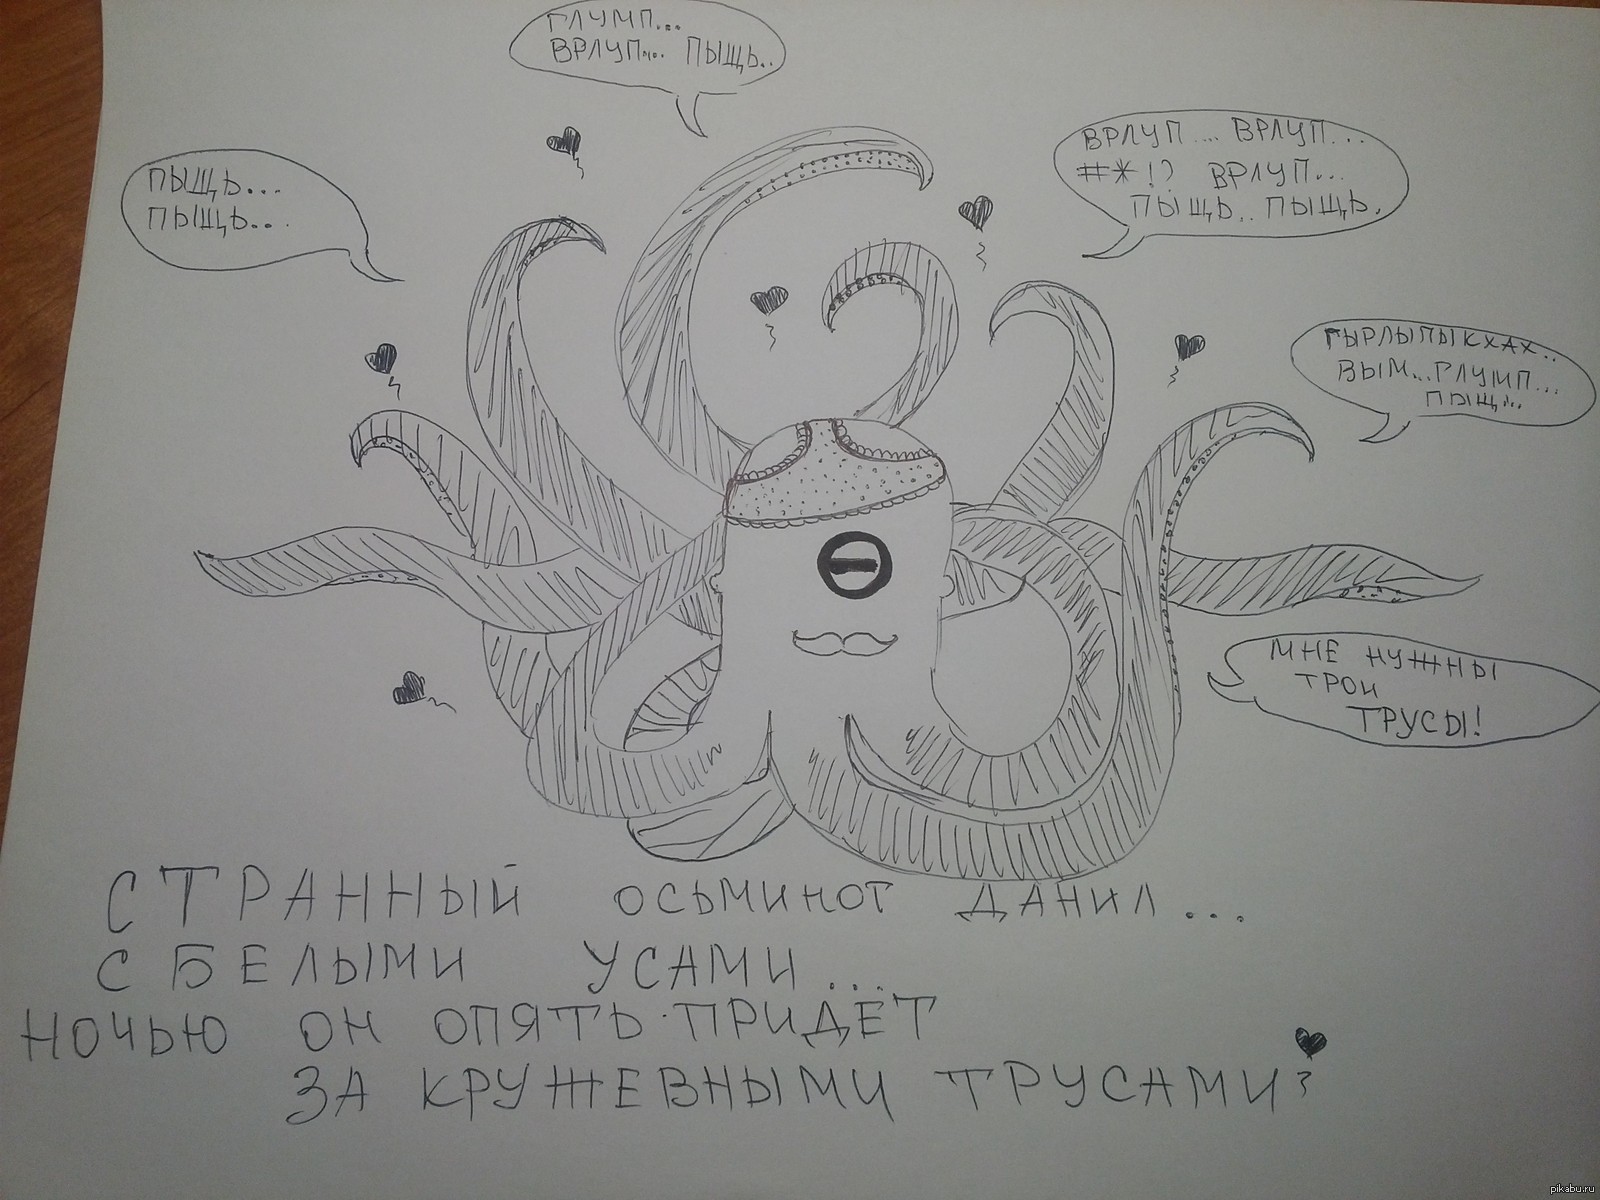 ГЛУМП...
ВРЛУП... ПЫЩЬ..
ПЫЩЬ...
ПЫЩЬ...
ВРЛУП... ВРЛУП...
#*!? ВРЛУП...
ПЫЩЬ.. ПЫЩЬ.
ГЫРЛЫПЫКХАХ..
ВЫМ...ГЛУМП...
ПЫЩ...
МНЕ НУЖНЫ
ТВОИ
ТРУСЫ!
СТРАННЫЙ ОСЬМИНОГ ДАНИЛ...
С БЕЛЫМИ УСАМИ...
НОЧЬЮ ОН ОПЯТЬ ПРИДЁТ
ЗА КРУЖЕВНЫМИ ТРУСАМИ
pikabu.ru